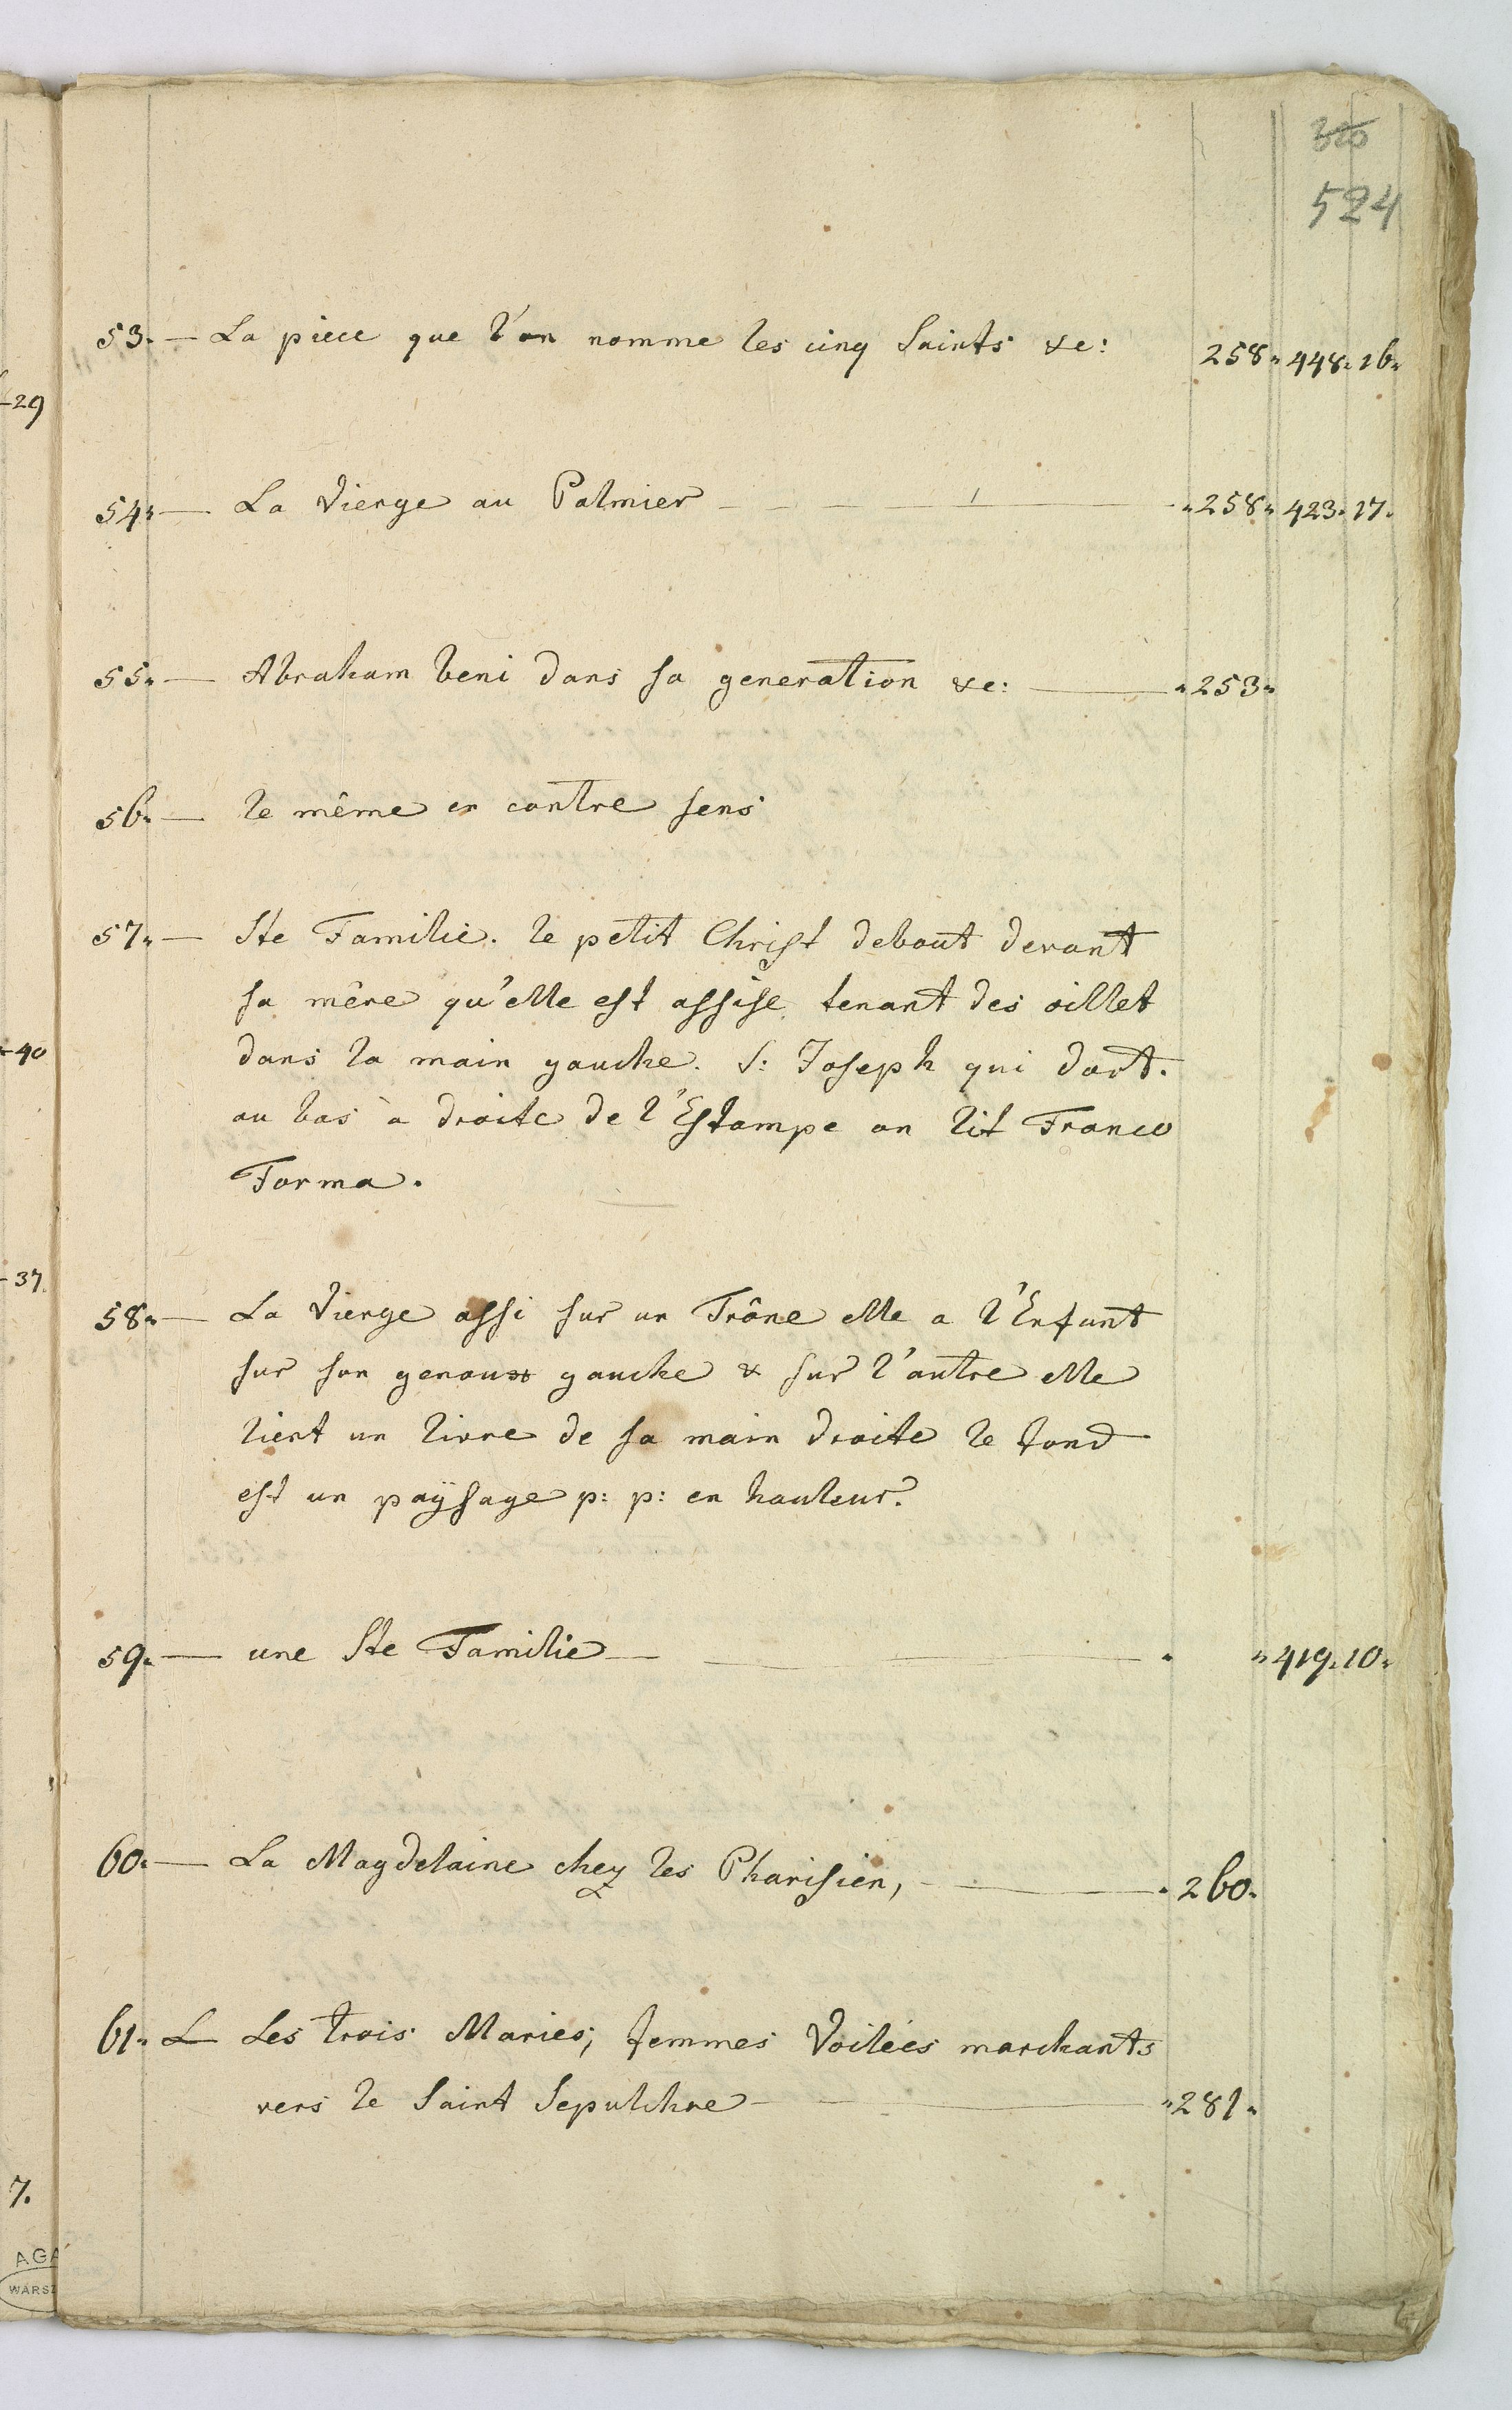 320
524
53. — La piece que l'on nomme les cinq Saints &c: 258 " 448. 16 "
54 " — La Vierge au Palmier — " 258 " 423. 17.
55 " — Abraham beni dans sa generation &c: — " 253 "
56 " — le même en contre sens
57 " — Ste Familie. le petit Christ debout devant
sa mêre qu'elle est assise tenant des oillet
dans la main gauche. S: Joseph qui dort.
au bas à droite de l'Estampe on lit Franco
Forma.
58 " — La Vierge assi sur un Trône elle a l'Enfant
sur son genoux gauche & sur l'autre elle
tient un livre de sa main droite le fond
est un paÿsage p: p: en hauteur.
59 " — une Ste Familie — " " 419. 10 "
60 " — La Magdelaine chez les Pharisien, — " 260 "
61 " L Les trois Maries; femmes Voilées marchants
vers le Saint Sepulchre — " 281 "
-29
-40
-37.
7.
AGA
WARSZ